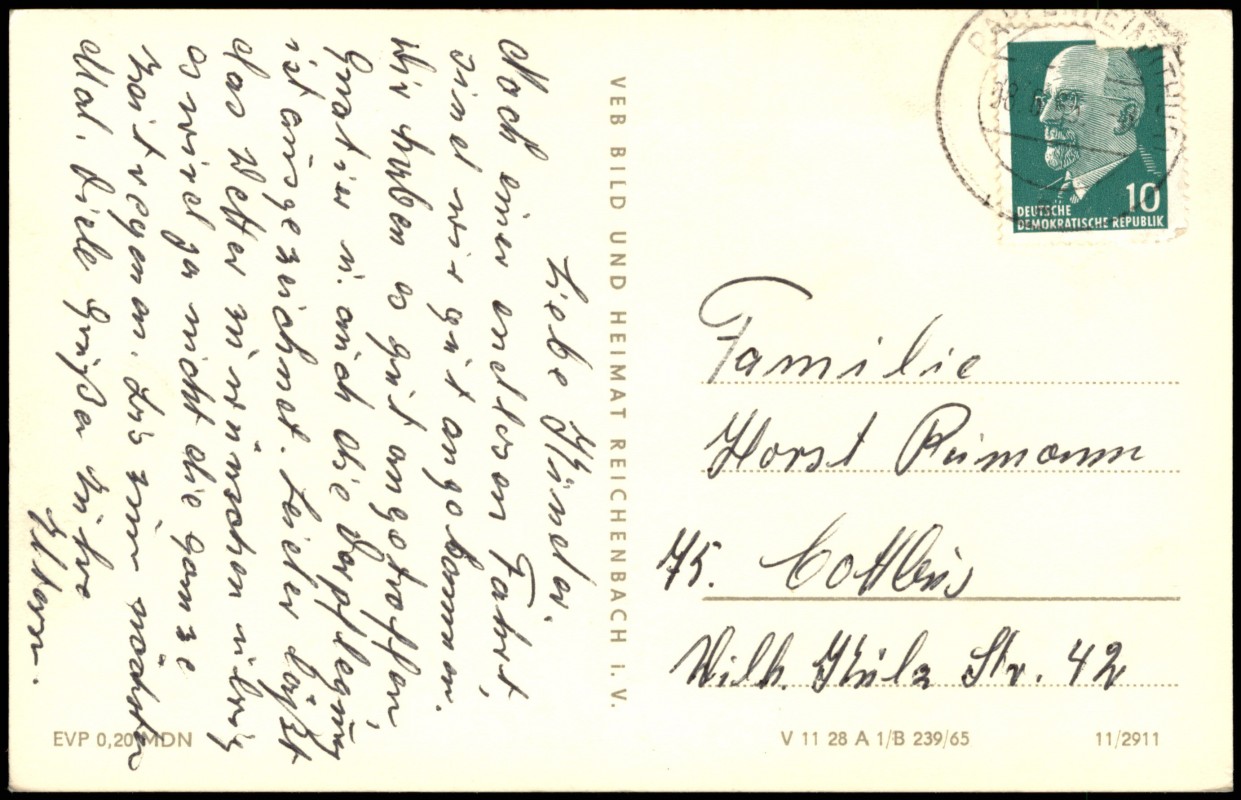 Liebe Kinder.
Nach einer endlosen Fahrt,
sind wir gut angekommen.
Wir haben es gut angetroffen
Quatier u. auch die Verpflegung
ist ausgezeichnet. Leider läßt
das Wetter zu wünschen übrig
es wird ja nicht die ganze
Zeit regnen. Bis zum nächsten
Mal. Viele Grüße
Eltern.
VEB BILD UND HEIMAT REICHENBACH i. V.
10
DEUTSCHE
DEMOKRATISCHE REPUBLIK
Familie
Horst Reimann
75. Cottbus
Wilh. Külz Str. 42
EVP 0,20 MDN
V 11 28 A 1/B 239/65
11/2911